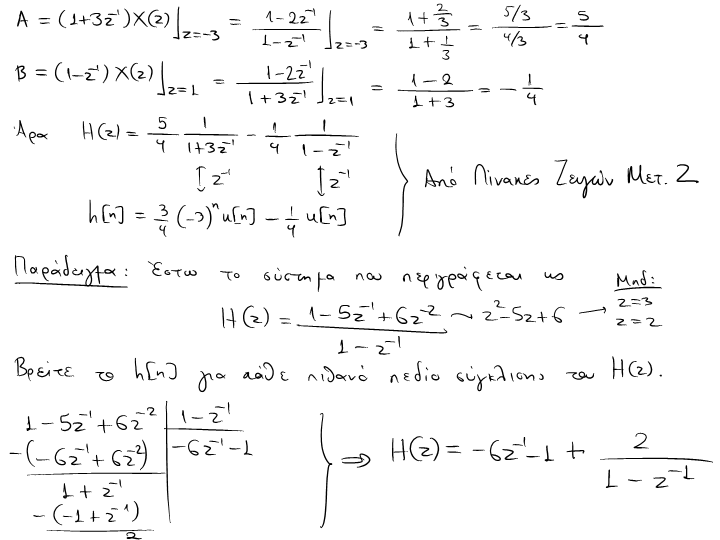 A = (1+3z⁻¹)X(z)|z=-3 = (1-2z⁻¹)/(1-z⁻¹)|z=-3 = (1+2/3)/(1+1/3) = (5/3)/(4/3) = 5/4
B = (1-z⁻¹)X(z)|z=1 = (1-2z⁻¹)/(1+3z⁻¹)|z=1 = (1-2)/(1+3) = -1/4
Άρα H(z) = 5/4 1/(1+3z⁻¹) - 1/4 1/(1-z⁻¹)
↕z⁻¹ ↕z⁻¹ } Από Πίνακες Ζευγών Μετ. Z
h[n] = 3/4 (-3)ⁿu[n] - 1/4 u[n]
Παράδειγμα: Έστω το σύστημα που περιγράφεται ως
H(z) = (1-5z⁻¹+6z⁻²)/(1-z⁻¹) ~ z²-5z+6 → Μηδ: z=3 z=2
Βρείτε το h[n] για κάθε πιθανό πεδίο σύγκλισης του H(z).
1-5z⁻¹+6z⁻² | 1-z⁻¹
-(-6z⁻¹+6z⁻²) | -6z⁻¹-1
1+z⁻¹ } ⇒ H(z) = -6z⁻¹-1 + 2/(1-z⁻¹)
-(-1+z⁻¹)
2